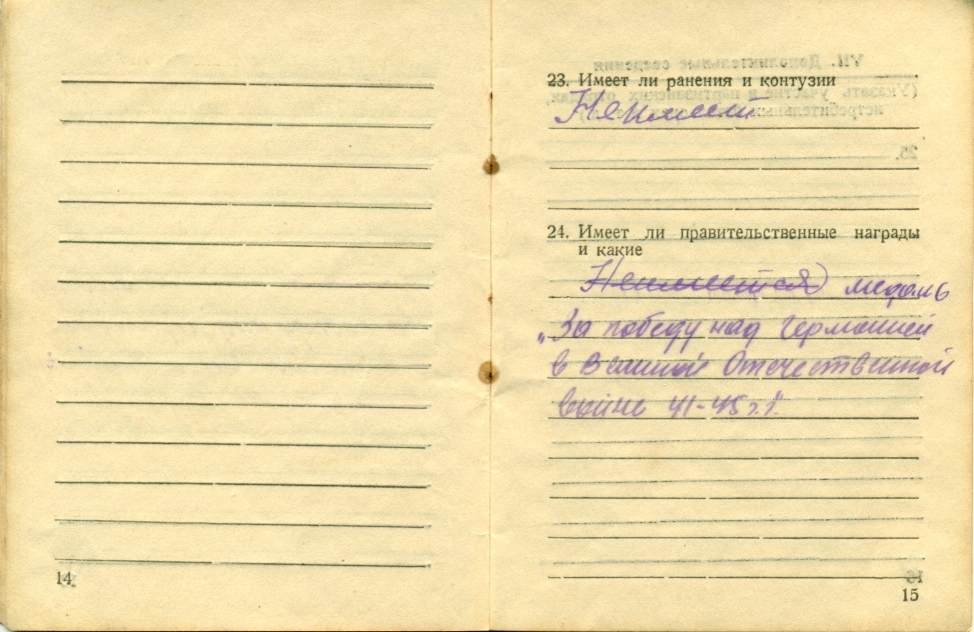 14
23. Имеет ли ранения и контузии
Не имеет
24. Имеет ли правительственные награды
и какие
Не имеется медаль
„За победу над Германией
в Великой Отечественной
войне 41-45 г.г."
15